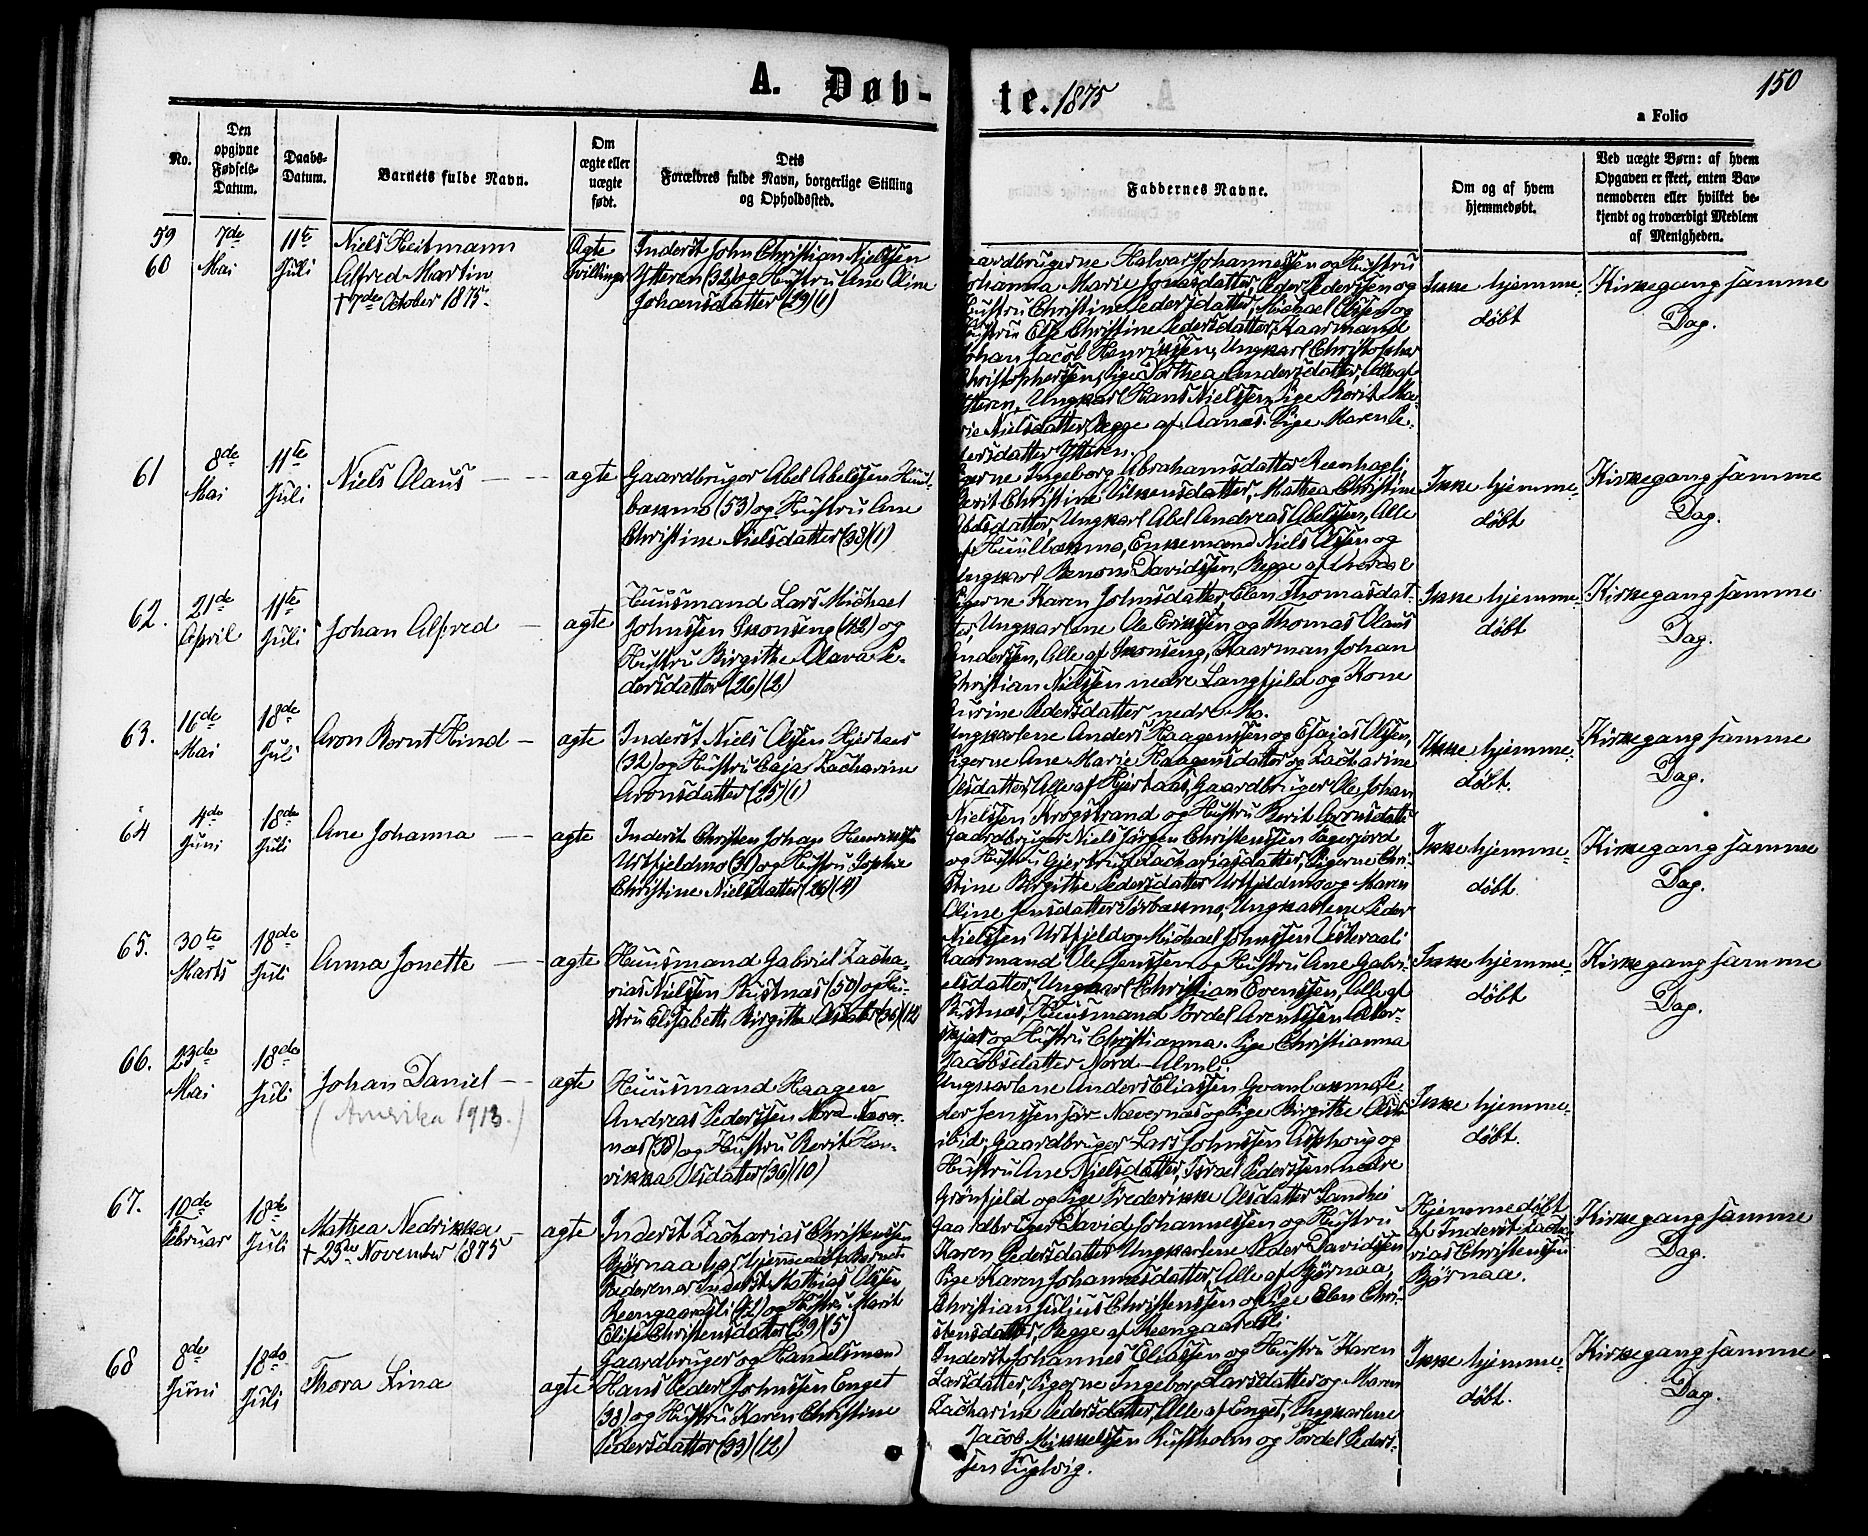 A. Døb-
te. 1875
150
a Folio
No.
Den
opgivne
Fødsels-
Datum.
Daabs-
Datum.
Barnets fulde Navn.
Om
ægte eller
uægte
født.
Dets
Forældres fulde Navn, borgerlige Stilling
og Opholdssted.
Faddernes Navne.
Om og af hvem
hjemmedøbt.
Ved uægte Børn: af hvem
Opgaven er skeet, enten Bar-
nemoderen eller hvilket be-
kjendt og troværdigt Medlem
af Menigheden.
59
60
7de
Mai
11te
Juli
Niels Heitmann
Alfred Martin
†7de October 1875.
Ægte
Tvillinger
Inderst John Christian Nielssen
Ytteren (32) og Hustru Ane Oline
Johansdatter (29)(1)
aardbrugerne Halvar Johannessen og Hustru
ohanna Marie Jonasdatter, Peder Pederssen og
Hustru Christine Pedersdatter, Michael Olssen og
Hustru Else Christine Pedersdatter, Kaarmand
ohan Jacob Henrikssen, Ungkarl Christopher
hristopherssen, Pige Dorthea Andersdatter, Alle af
tteren, Ungkarl Hans Nielssen, Pige Berit Ma-
rie Nielsdatter, Begge af Aanæs. Pige Maren Pe-
dersdatter Ytteren.
Ikke hjemme-
døbt
Kirkegang samme
Dag.
61
8de
Mai
11te
Juli
Niels Olaus
ægte
Gaardbruger Abel Abelssen Huul-
bækmo (53) og Hustru Ane
Christine Nielsdatter (38)(1)
gerne Ingeborg Abrahamsdatter
Berit Christine, Mathea Christine
Abelsdatter, Ungkarl Abel Andreas Abelssen, Alle
af Huulbækmo, Enkemand Niels Olssen og
Ungkarl Benoni Davidssen, Begge af
Ikke hjemme-
døbt
Kirkegang samme
Dag.
62.
21de
April
11te
Juli
Johan Alfred
ægte
Huusmand Lars Michael
Johnssen Skonseng (42) og
Hustru Birgithe Olava Pe-
dersdatter (26)(2)
Pigerne Karen Johnsdatter, Elen Thomasdat-
ter, Ungkarlene Ole Erikssen og Thomas Olaus
Anderssen, Alle af Skonseng, Kaarman Johan
Christian Nielssen nedre Langfjeld og Kone
Pedersdatter nedre Mo.
Ikke hjemme-
døbt
Kirkegang samme
Dag.
63.
16de
Mai
18de
Juli
Aron Bernt Hind
ægte
Inderst Niels Olssen Hjertaas
(32) og Hustru Caja Zacharine
Aronsdatter (25)(1)
Ungkarlene Anders Haagenssen og Esajas Olssen,
Pigerne Ane Marie Haagensdatter og Zacharine
Olsdatter, Alle af Hjertaas, Gaardbruger Ole Johan
Nielssen Krogstrand og Hustru Berit Aronsdatter
Ikke hjemme-
døbt.
Kirkegang samme
Dag.
64
4de
Juni
18de
Juli
Ane Johanna
ægte
Inderst Christen Johan Henrikssen
Urtfjeldmo (31) og Hustru Sophie
Christine Nielsdatter (26)(4)
Gaardbruger Niels Jørgen Christenssen
og Hustru Gjertrud Zachariasdatter, Pigerne Chri-
stine Birgithe Pedersdatter Urtfjeldmo og Maren
Oline Jensdatter Sørbækmo, Ungkarlene Peder
Nielssen Urtfjeld og Michael Johnssen
Ikke hjemme-
døbt.
Kirkegang samme
Dag.
65.
30te
Marts
18de
Juli
Anna Jonette
ægte
Huusmand Gabriel Zacha-
rias Nielssen Bustnæs (50) og Hu-
stru Elisabeth Birgitha Olsdatter (36)(12)
Kaarmand Ole Jenssen og Hustru Ane Gabri-
elsdatter, Ungkarl Christian Evenssen, Alle af
Bustnæs, Huusmand Tordel Arentssen
og Hustru Christianna. Pige Christianna
Jacobsdatter Nord-
Ikke hjemme-
døbt
Kirkegang samme
Dag.
66.
23de
Mai
18de
Juli
Johan Daniel
(Amerika 1913.)
ægte
Huusmand Haagen
Andreas Pederssen Nord Næver-
næs (38) og Hustru Berit Hen-
rikka Olsdatter (36)(10)
Ungkarlene Anders Eliassen, Pe-
der Jenssen sør Nævernæs og Pige Birgithe
ibid, Gaardbruger Lars Johnssen og
Hustru Ane Nielsdatter, Israel Pederssen nedre
Grønfjeld og Pige Frederikke Olsdatter
Ikke hjemme-
døbt.
67.
10de
Februar
18de
Juli
Mathea Nedrikka
† 23de November 1875
ægte
Inderst Zacharias Christenssen
Bjørnaa har hjemmedøbt Barnet.
Inderst Mathias Olssen
Reengaardsli (42) og Hustru Marit
Elise Christensdatter (29)(5)
Gaardbruger David Johannessen og Hustru
Karen Pedersdatter, Ungkarlene Peder Davidssen
Pige Karen Johannesdatter, Alle af Bjørnaa,
Christian Julius Christenssen og Pige Elen Chri-
stensdatter, Begge af Reengaardsli
Hjemmedøbt
af Inderst Zacha-
rias Christenssen
Bjørnaa.
Kirkegang samme
Dag.
68
8de
Juni
18de
Juli
Thora Lina
ægte
Gaardbruger og Handelsmand
Hans Peder Johnssen Enget
(38) og Hustru Karen Christine
Pedersdatter (33)(12)
Inderst Johannes Eliassen og Hustru Karen
Larsdatter, Pigerne Ingeborg Larsdatter og Maren
Zacharine Pedersdatter, Alle af Enget, Ungkarlene
Jacob Mikkelssen Rufsholm og Tordel Peders-
sen Fuglvig.
Ikke hjemme-
døbt.
Kirkegang samme
Dag.